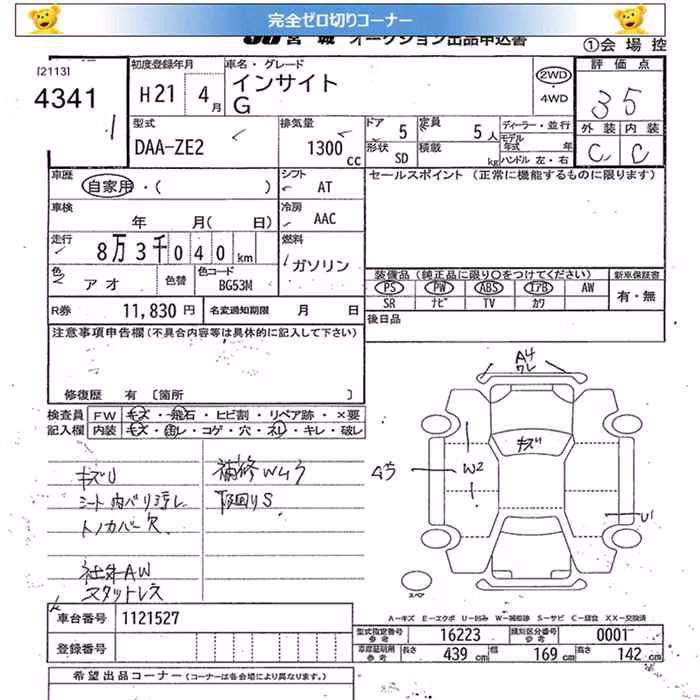 完全ゼロ切りコーナー
JU宮城 オークション出品申込書
①会場控
[2113]
4341
初度登録年月
H21 4月
車名・グレード
インサイト
G
2WD
・
4WD
評価点
3 5
外装 内装
C C
型式
DAA-ZE2
排気量
1300cc
ドア 5
形状 SD
定員 5人
積載 kg
ディーラー・並行
モデル年式 年
ハンドル 左・右
車歴
自家用・( )
シフト
AT
セールスポイント (正常に機能するものに限ります)
車検
年 月(日)
冷房
AAC
走行
8万3千040km
燃料
ガソリン
色
アオ
色替
色コード
BG53M
装備品(純正品に限り〇をつけてください)
新車保証書
PS PW ABS エアB AW
SR ナビ TV カワ
有・無
R券 11,830円
名変通知期限 月 日
後日品
注意事項申告欄(不具合内容等は具体的に記入して下さい)
修復歴 有 [箇所 ]
検査員記入欄
FW キズ・飛石・ヒビ割・リペア跡・×要
内装 キズ・汚レ・コゲ・穴・スレ・キレ・破レ
シート内バリ汚レ
トノカバー欠
社外AW
スタットレス
補修Wムラ
下回りS
A4
ワレ
キズ
W2
U1
スペア
A-キズ E-エクボ U-凹み W-補修跡 S-サビ C-腐食 XX-交換済
車台番号 1121527
登録番号
型式指定番号参考 16223
類別区分番号参考 0001
車庫証明用参考 長さ 439cm 幅 169cm 高さ 142cm
希望出品コーナー(コーナーは各会場により異なります)